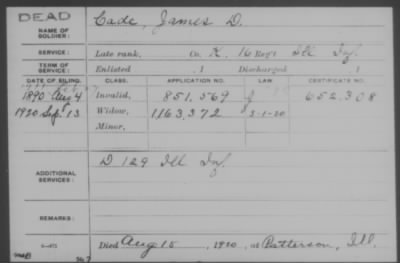 DEAD
NAME OF SOLDIER: Cade, James D.
SERVICE: Late rank, Co. K, 16 Reg't Ill Inf.
TERM OF SERVICE: Enlisted , 1 Discharged , 1
DATE OF FILING. CLASS. APPLICATION NO. LAW CERTIFICATE NO.
1890 Aug 4 Invalid, 851,569 652,308
1920 Sept 13 Widow, 1163,372 5-1-20
Minor,
ADDITIONAL SERVICES: D 129 Ill Inf.
REMARKS:
Died Aug 15, 1920, at Patterson, Ill.